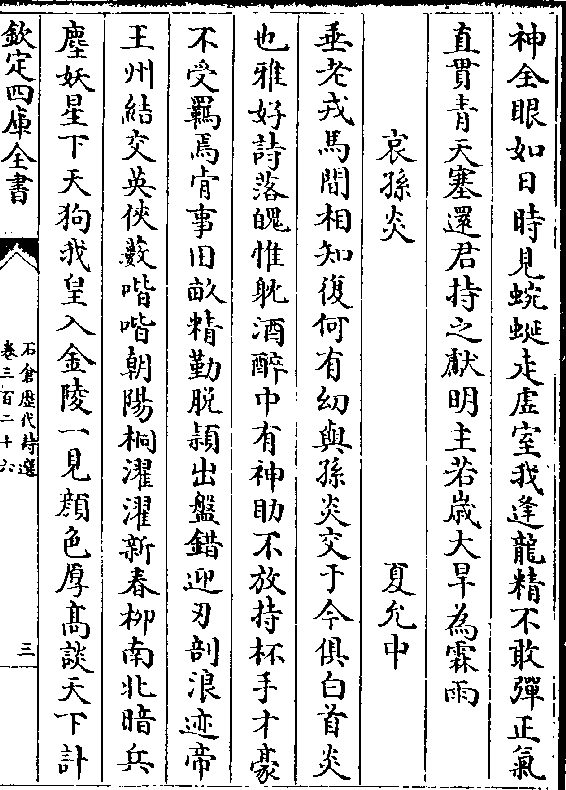 神全眼如日時見蜿蜒走虚室我逢龍精不敢彈正氣
直貫青天塞還君持之獻明主若歳大旱為霖雨
哀孫炎　夏允中
垂老戎馬間相知復何有幼與孫炎交于今俱白首炎
也雅好詩落魄惟躭酒醉中有神助不放持杯手才豪
不受羈焉肯事田畝精勤脱頴出盤錯迎刃剖浪迹帝
王州結交英俠藪喈喈朝陽桐濯濯新春栁南北暗兵
塵妖星下天狗我皇入金陵一見顔色厚髙談天下計
欽定四庫全書
石倉歴代詩選
卷三百二十六
三